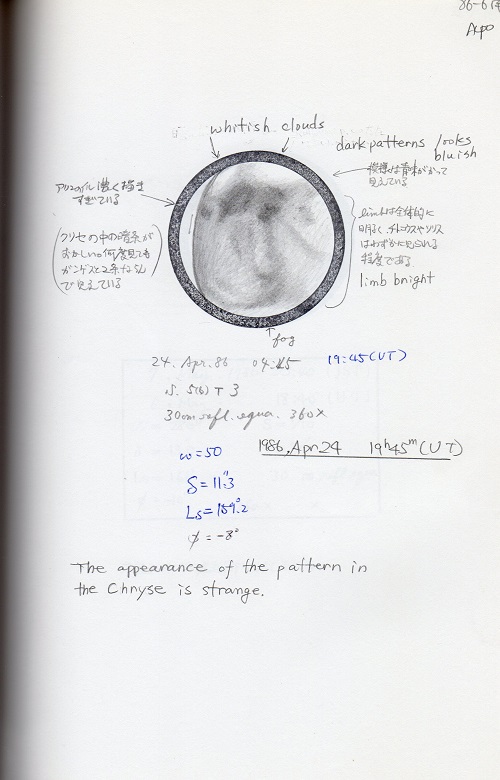 86-6
Apo
whitish clouds
dark patterns looks
bluish
模様は青味がかって
見えている
アリンのツメ 濃く描き
すぎている
limbは全体的に
明るく、
はわずかに見られる
程度である
limb bright
クリセの中の暗条が
おかしい。何度見ても
ガンゲスと2条ならん
で見えている
fog
24. Apr. 86 04:45
19:45 (UT)
S. 5(6) T 3
30cm refl. equa. 360×
1986. Apr 24 19h45m (UT)
ω = 50
δ = 11".3
Ls = 159°.2
φ = -8°
The appearance of the pattern in
the Chryse is strange.